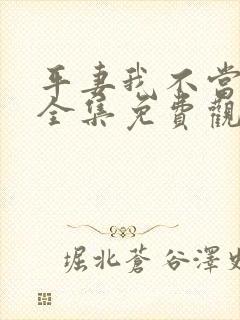 平妻我不當
全集免費觀
堀北蒼谷澤